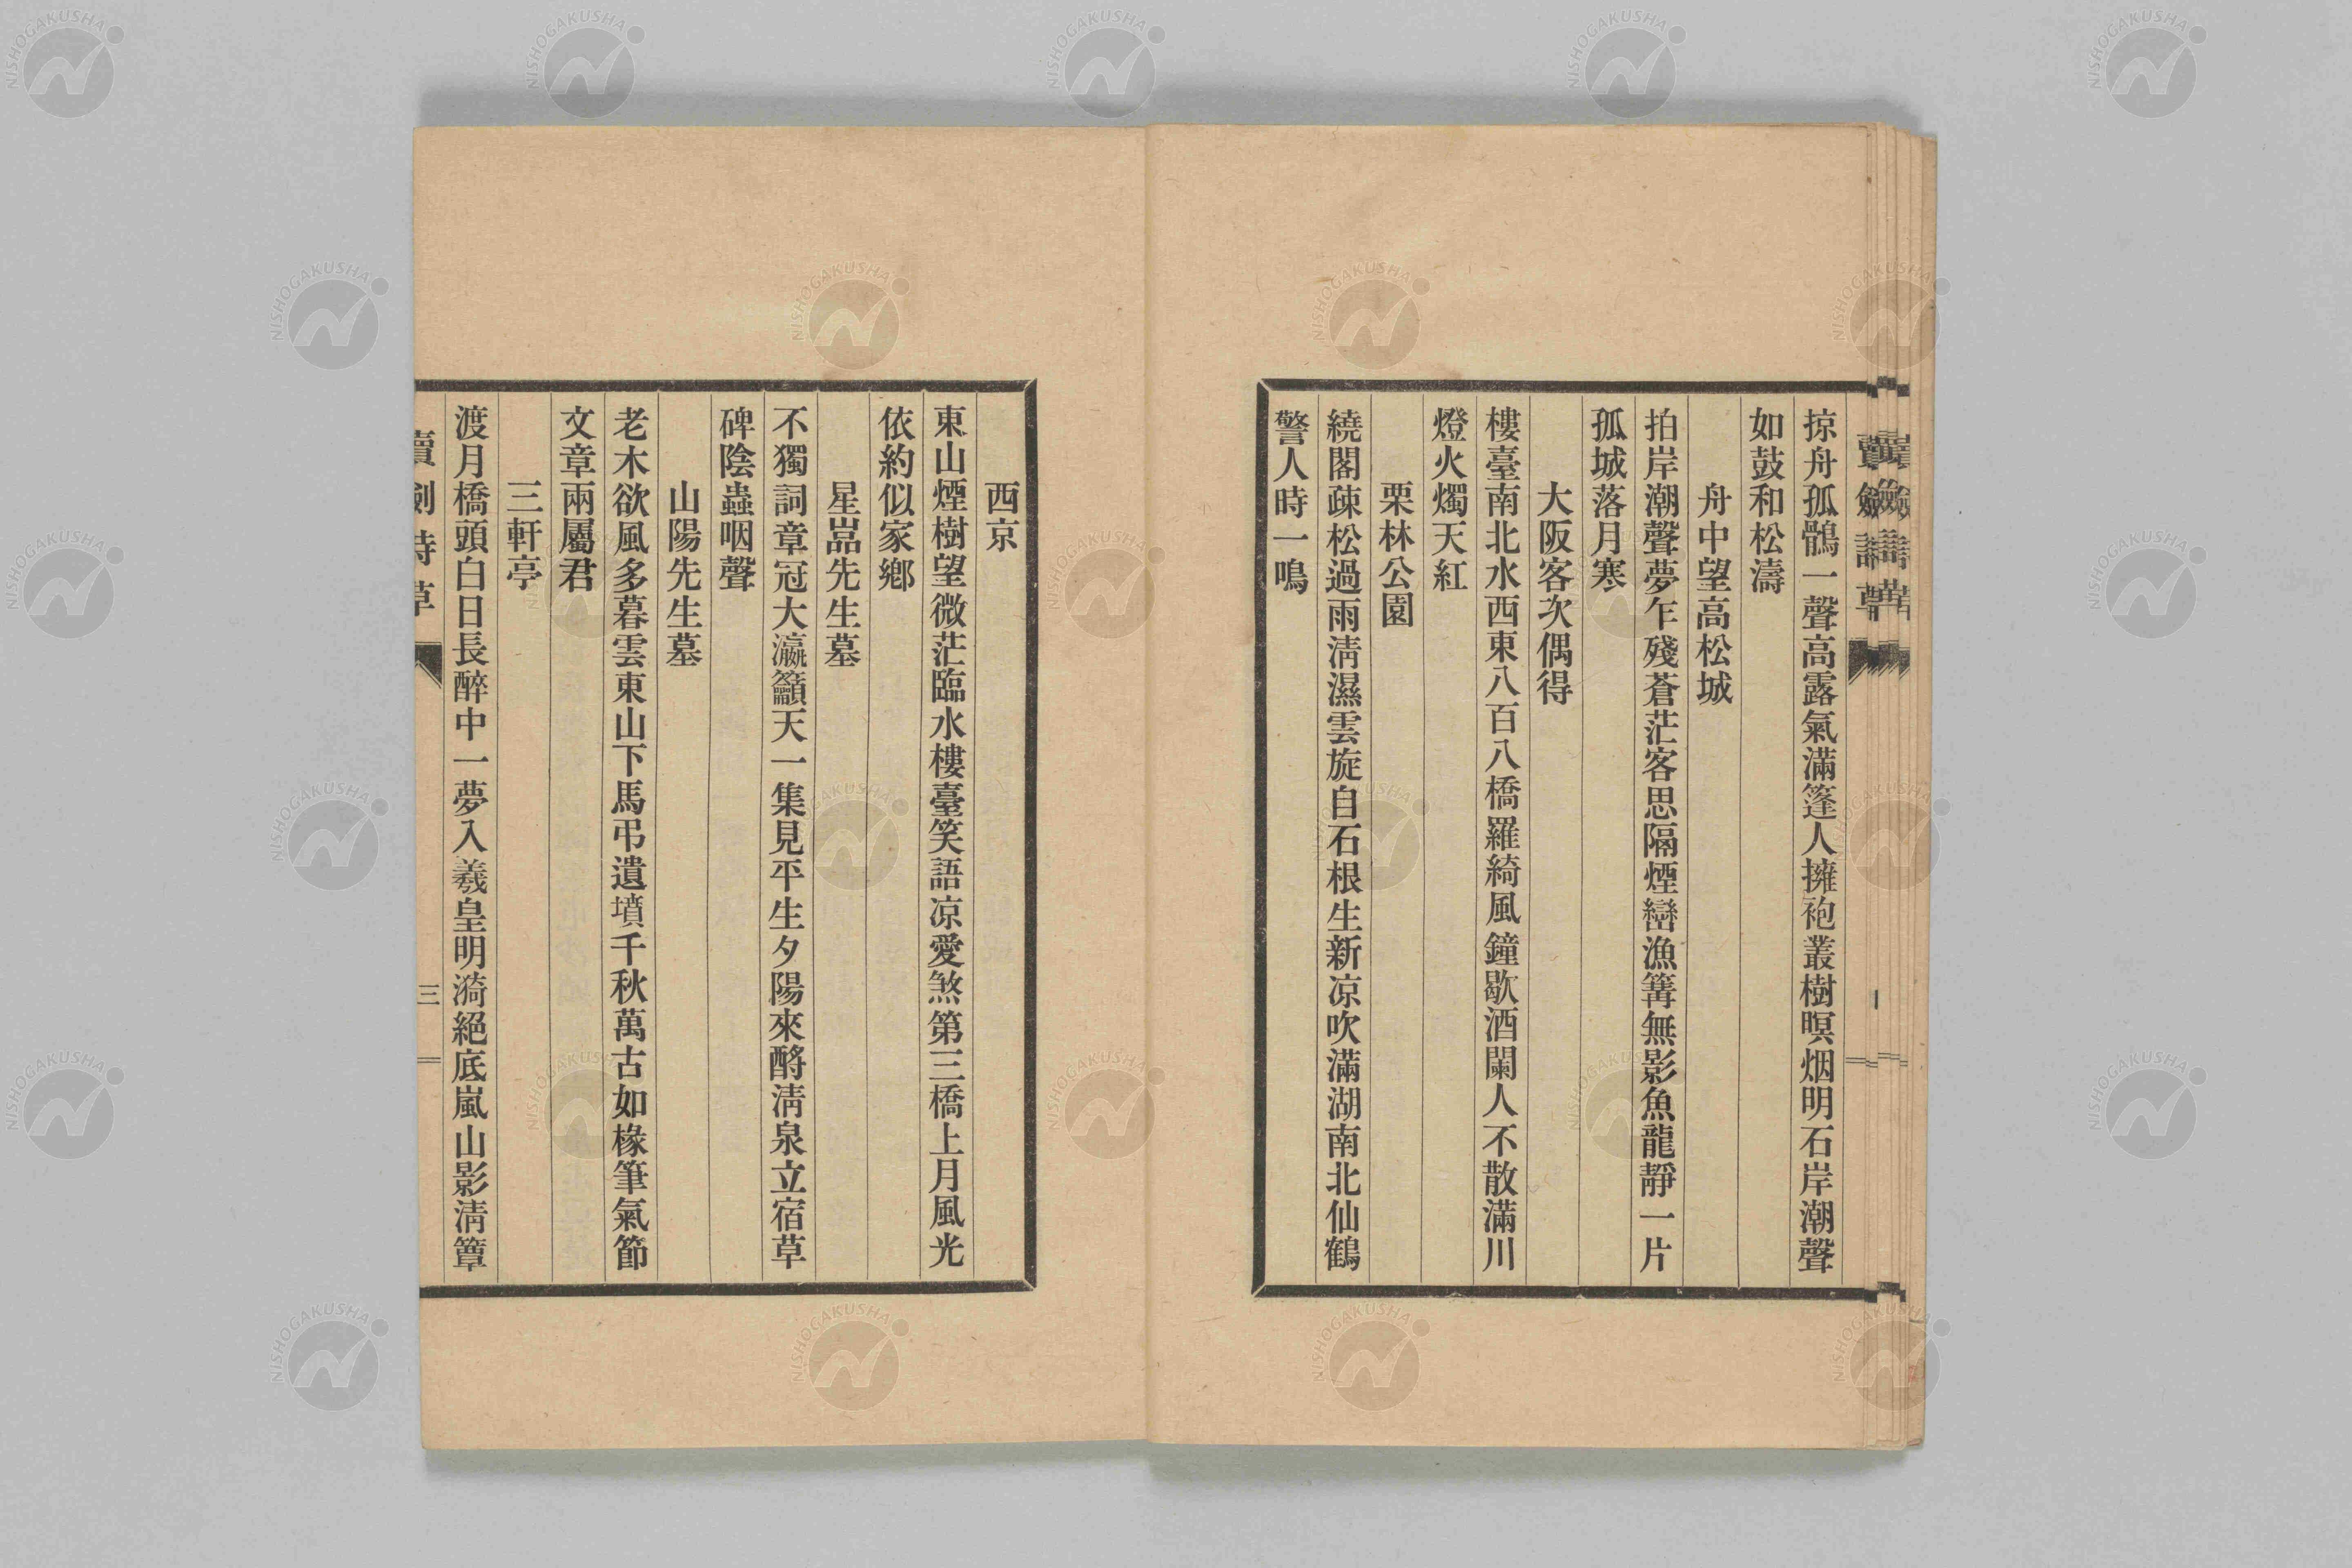 掠舟孤鶻一聲高露氣滿篷人擁袍叢樹暝烟明石岸潮聲
如鼓和松濤
舟中望高松城
拍岸潮聲夢乍殘蒼茫客思隔煙巒漁篝無影魚龍靜一片
孤城落月寒
大阪客次偶得
樓臺南北水西東八百八橋羅綺風鐘歇酒闌人不散滿川
燈火燭天紅
栗林公園
繞閣疎松過雨淸濕雲旋自石根生新凉吹滿湖南北仙鶴
警人時一鳴
西京
東山煙樹望微茫臨水樓臺笑語凉愛煞第三橋上月風光
依約似家鄕
星嵓先生墓
不獨詞章冠大瀛籲天一集見平生夕陽來酹淸泉立宿草
碑陰蟲咽聲
山陽先生墓
老木欲風多暮雲東山下馬弔遺墳千秋萬古如椽筆氣節
文章兩屬君
三軒亭
渡月橋頭白日長醉中一夢入羲皇明漪絕底嵐山影淸簟
賣劍詩草
三
NISHOGAKUSHA